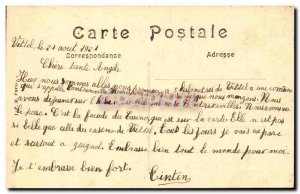 Carte Postale
Correspondance
Adresse
Vittel, le 21 aout 1921
Chère tante Angèle
Hier nous sommes allés nous promener à kilomètres de Vittel à une
qui s'appelle Contrexéville nous Nous
avons déjeuner sur l'herbe Contrexéville. Nous avons vu
le parc. C'est la façade du Casino qui est sur la carte. Elle n'est pas
si belle que celle du casino de Vittel. Tous les jours je vais au parc
et surtout à guignol. Embrasse bien tout le monde pour moi.
Je t'embrasse bien fort. Tintin